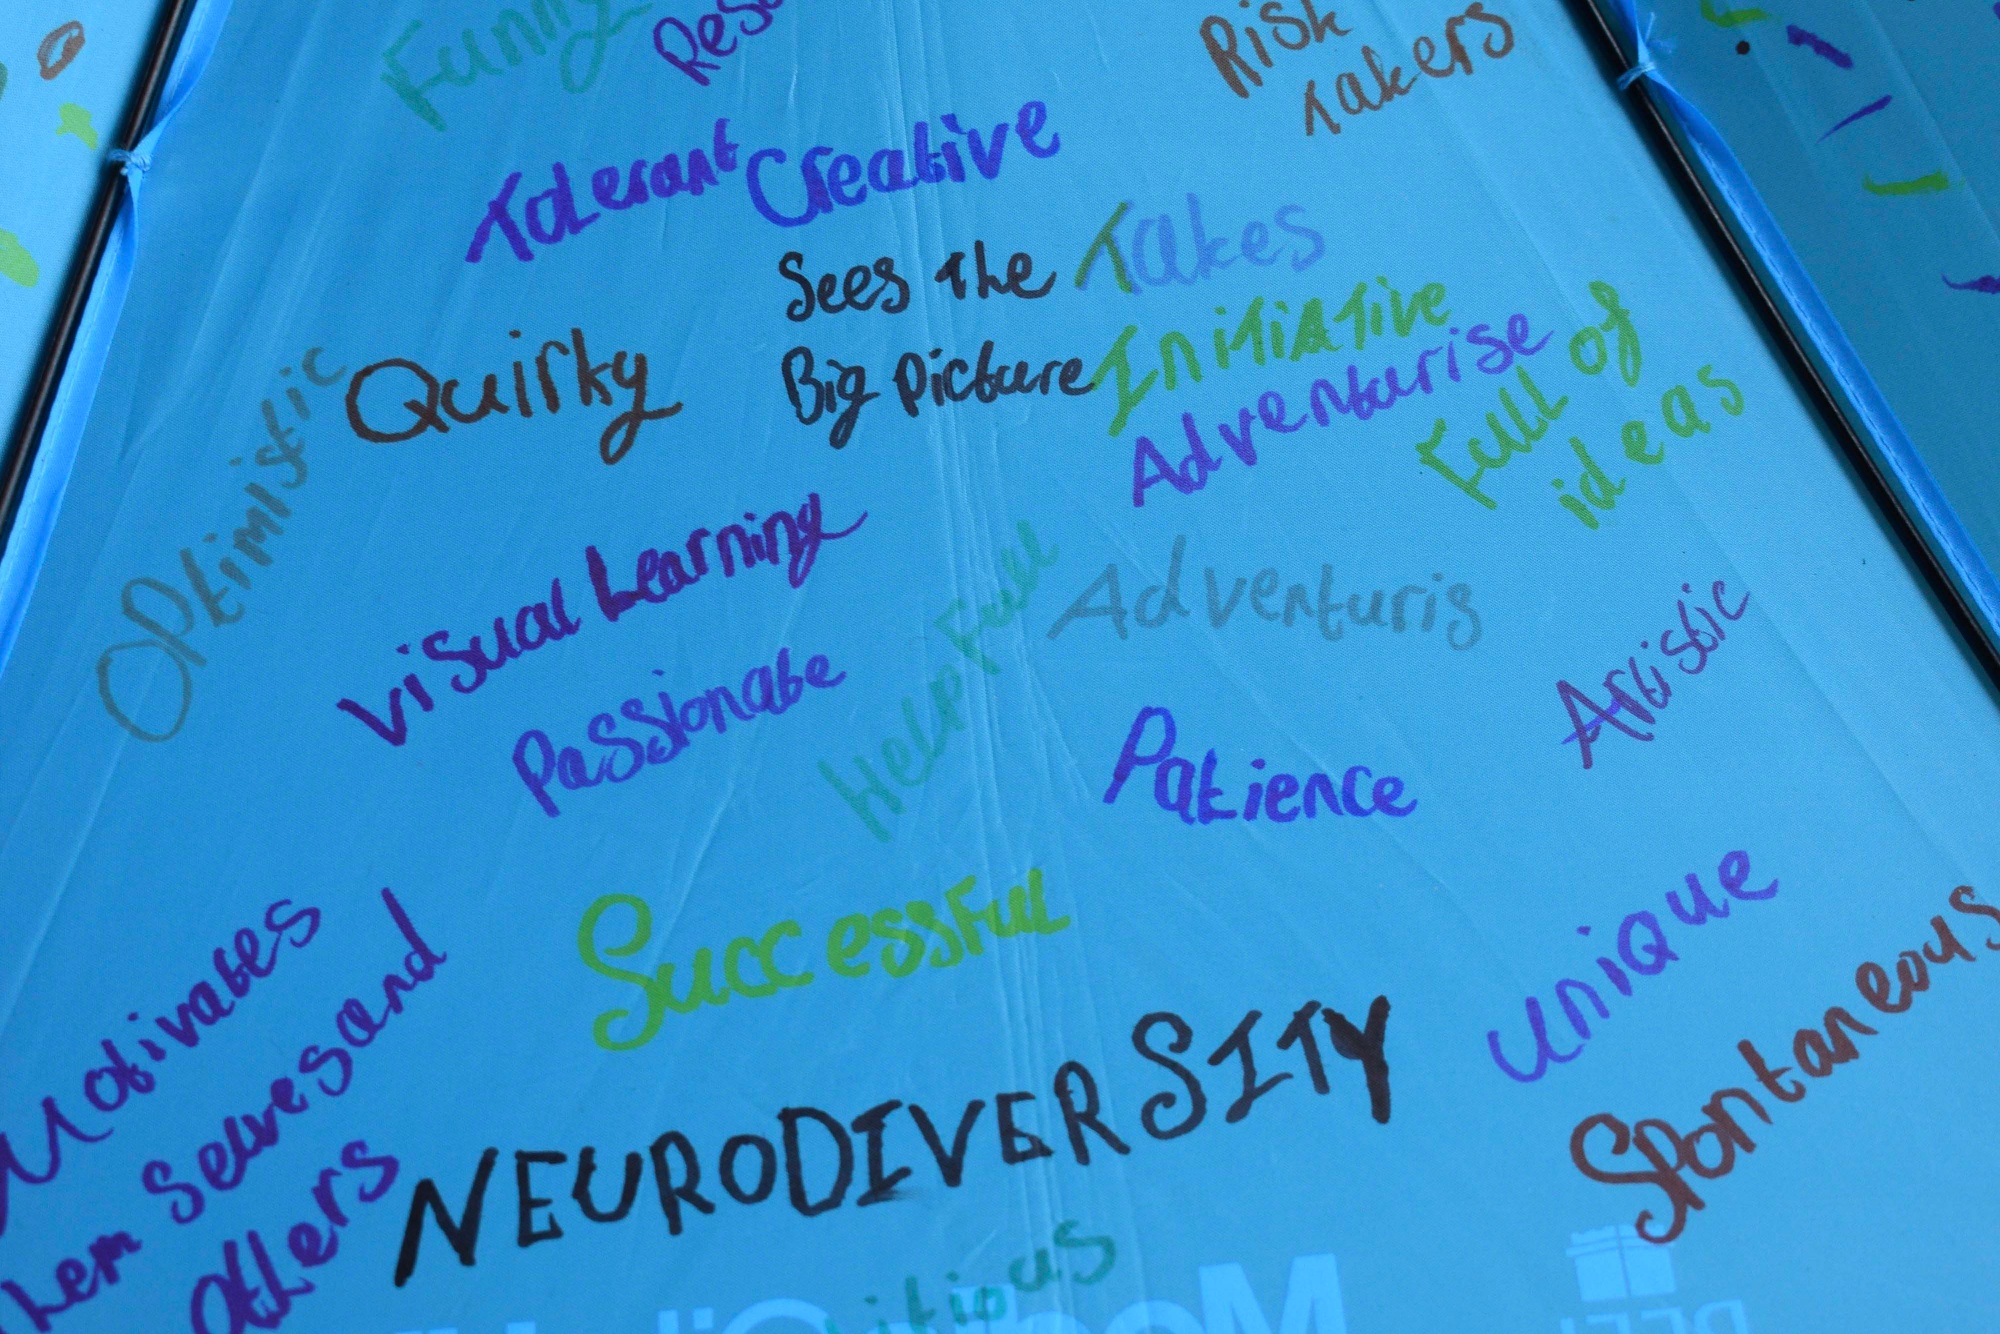 Funny
Risk
Takers
Tolerant
Creative
Sees the
Big picture
Takes
Initiative
Adventurise
Full of
ideas
Quirky
Optimistic
Visual Learning
Passionate
HelpFull
Adventuris
Patience
Artistic
Successful
Unique
Spontaneous
Motivates
them selves and
others
NEURODIVERSITY